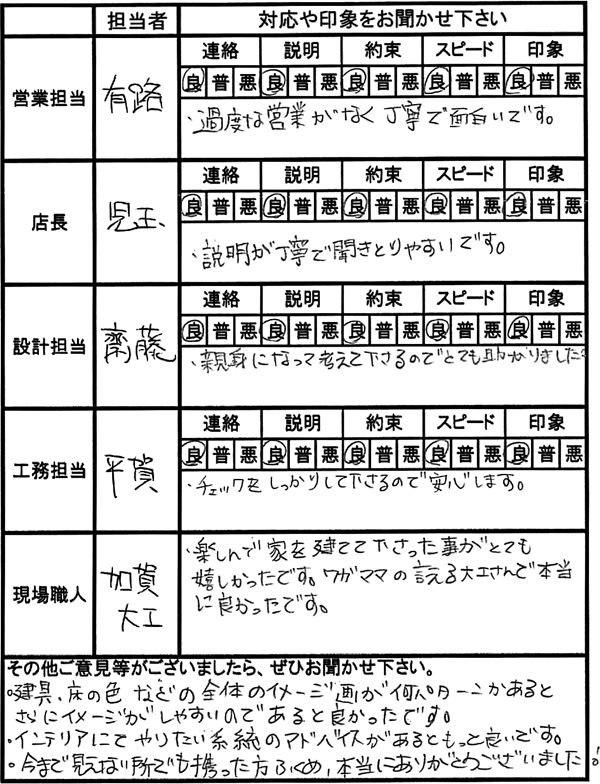 担当者 対応や印象をお聞かせ下さい
営業担当 有路
連絡 説明 約束 スピード 印象
良 普 悪 良 普 悪 良 普 悪 良 普 悪 良 普 悪
・過度な営業がなく丁寧で面白いです。
店長 児玉
連絡 説明 約束 スピード 印象
良 普 悪 良 普 悪 良 普 悪 良 普 悪 良 普 悪
・説明が丁寧で聞きとりやすいです。
設計担当 齋藤
連絡 説明 約束 スピード 印象
良 普 悪 良 普 悪 良 普 悪 良 普 悪 良 普 悪
・親身になって考えて下さるのでとても助かりました。
工務担当 平賀
連絡 説明 約束 スピード 印象
良 普 悪 良 普 悪 良 普 悪 良 普 悪 良 普 悪
・チェックをしっかりして下さるので安心します。
現場職人 加賀
大工
・楽しんで家を建てて下さった事がとても
嬉しかったです。ワガママの言える大工さんで本当
に良かったです。
その他ご意見等がございましたら、ぜひお聞かせ下さい。
・建具、床の色などの全体のイメージ画が何パターンかあると
さらにイメージがしやすいのであると良かったです。
・インテリアにてやりたい系統のアドバイスがあるともっと良いです。
・今まで見えない所でも携った方ふくめ、本当にありがとうございました!!